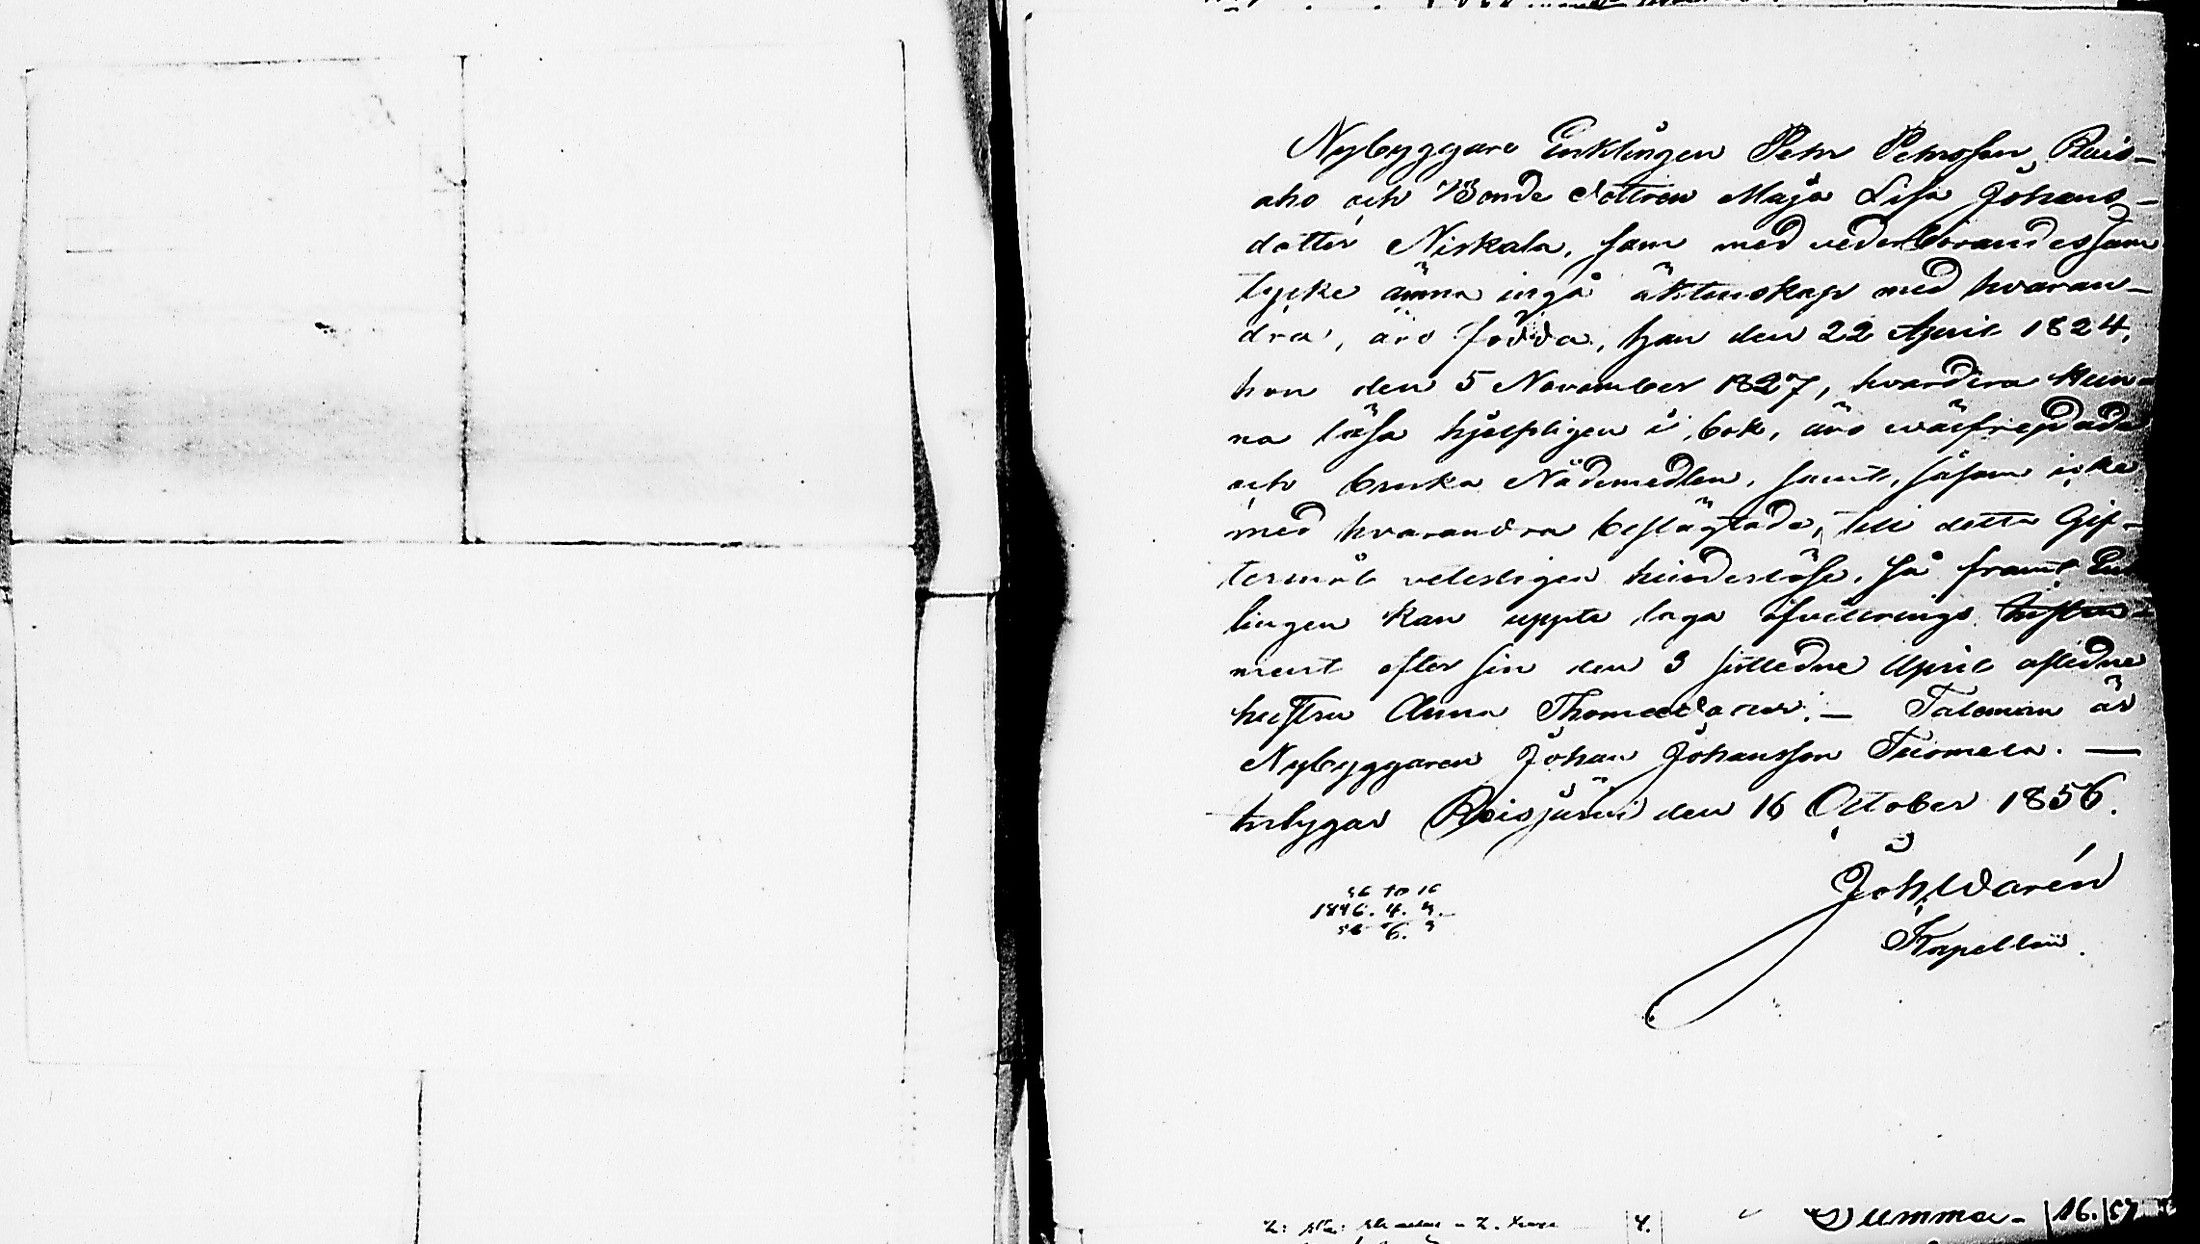 Nybyggare Enklingen Pehr Pehrsson Ruis-
aho och Bonde dottren Maja Lisa Johans-
dotter Niskala, som med vederbörandes sam
tycke ämna ingå äktenskap med hvaran-
dra, äro födda, han den 22 April 1824,
hon den 5 November 1827, hvardera kun-
na läsa hjelpligen i bok, äro välfrejdade
och bruka Nådemedlen, samt, såsom icke
med hvarandra beslägtade, till detta Gif-
termål veterligen hinderslöse, så framt Enk
lingen kan uppte laga afvittrings
ment efter sin den 3 sistledne April aflidne
hustru Anna Thomædotter. — Taloman är
Nybyggaren Johan Johansson Tuomela. —
betygar Reisjärvi den 16 October 1856.
Joh, Warén
Kapellan.
56 10 16
1846. 4. 3.
56 6. 3
4.
Summa - 16. 57